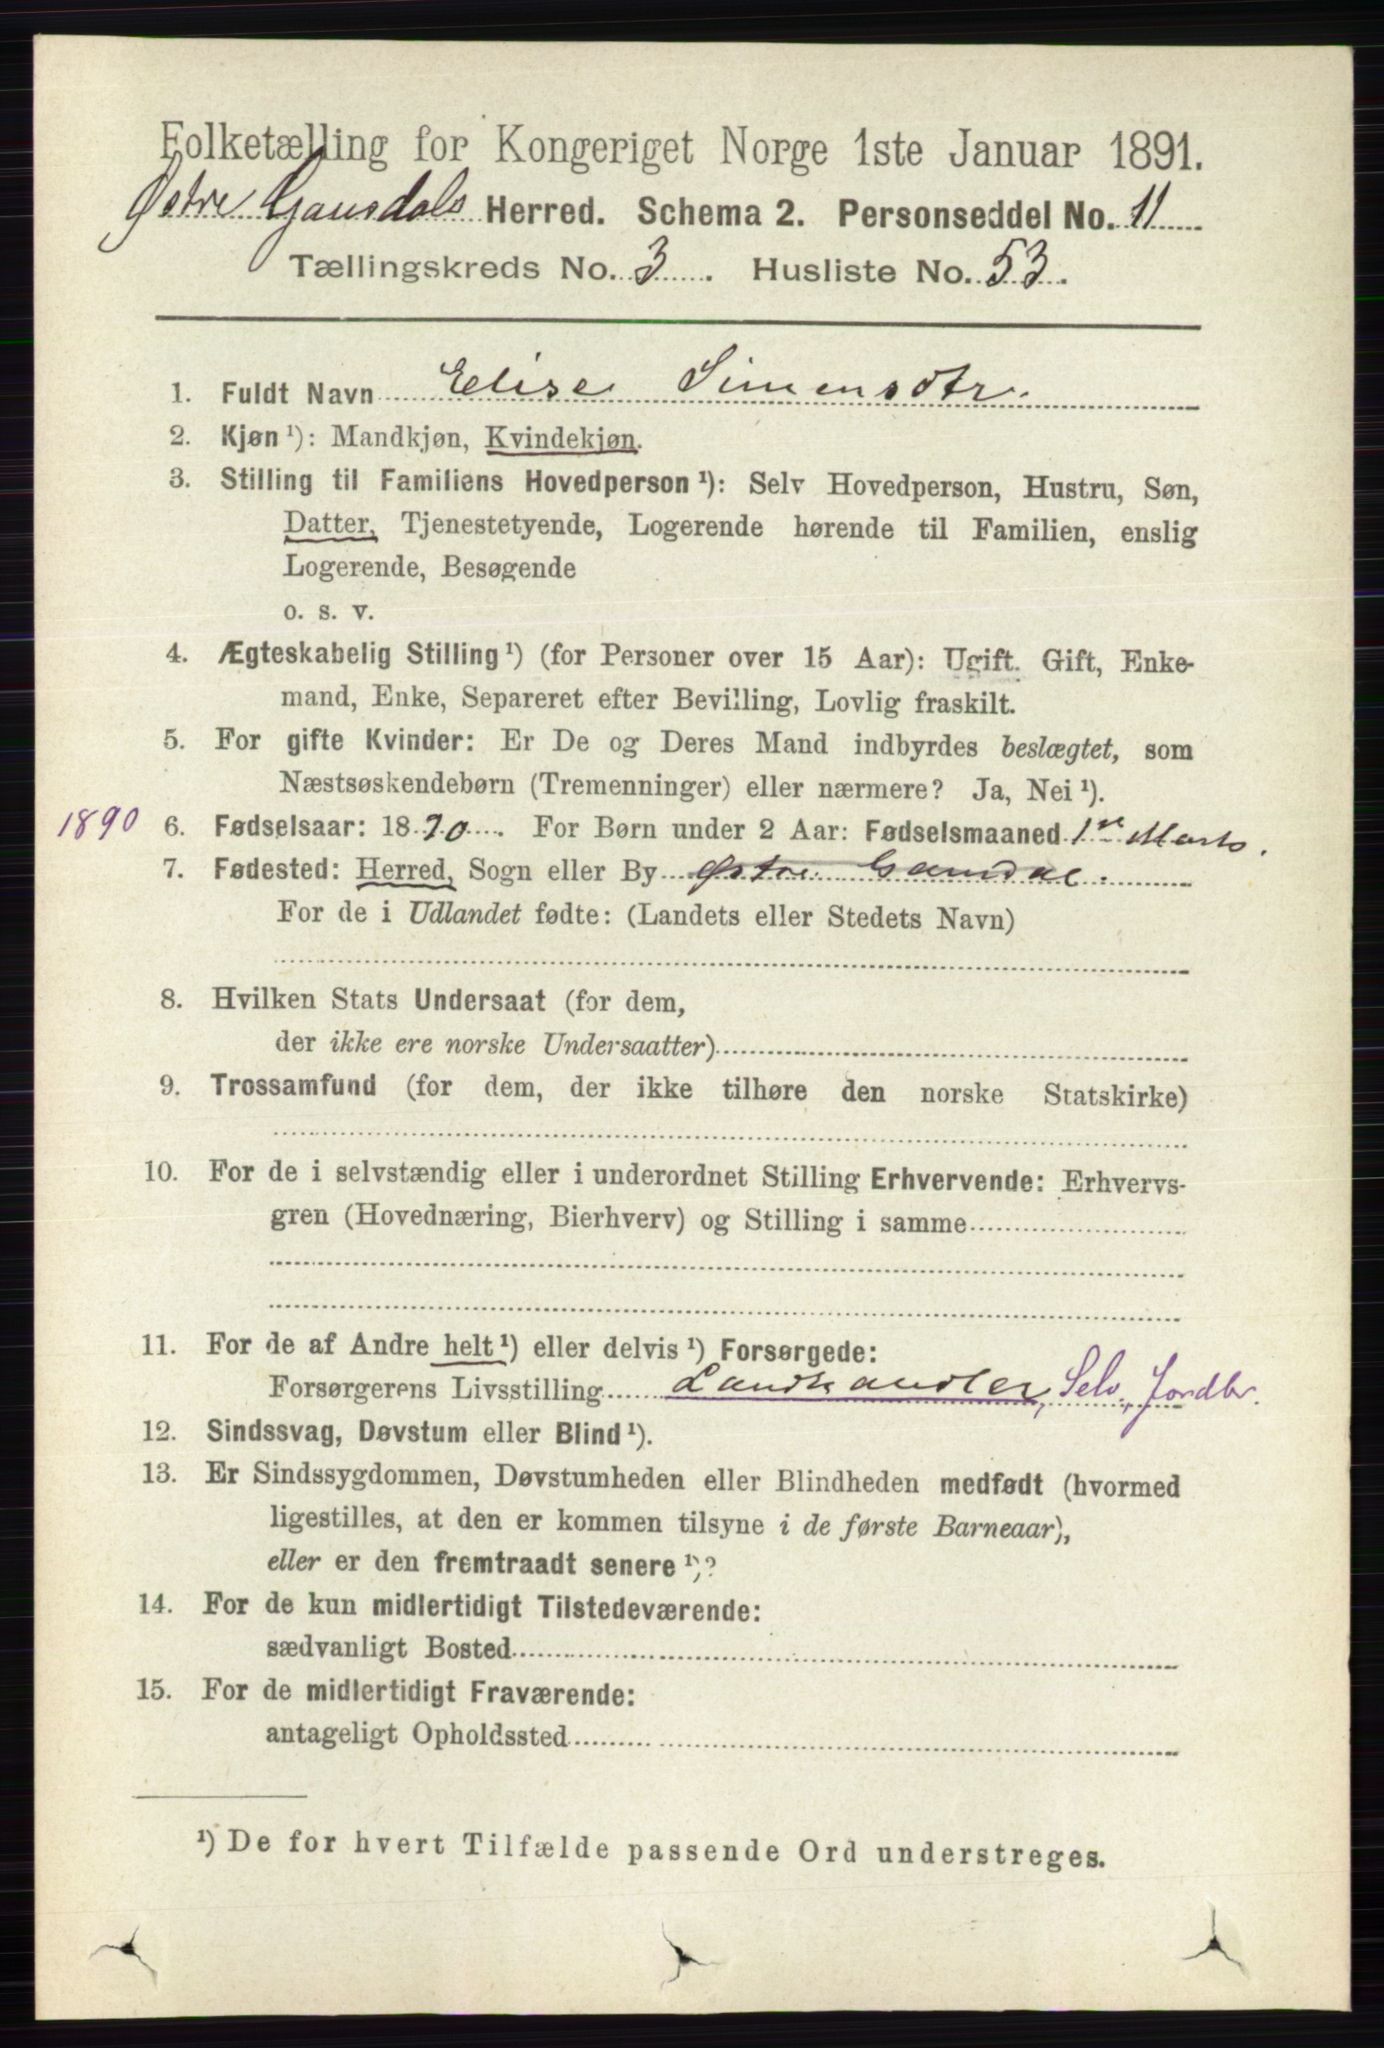 Folketælling for Kongeriget Norge 1ste Januar 1891.
Østre Gausdals Herred. Schema 2. Personseddel No. 11
Tællingskreds No. 3. Husliste No. 53.
1. Fuldt Navn Elise Simensdtr.
2. Kjøn¹): Mandkjøn, Kvindekjøn.
3. Stilling til Familiens Hovedperson¹): Selv Hovedperson, Hustru, Søn,
Datter, Tjenestetyende, Logerende hørende til Familien, enslig
Logerende, Besøgende
o. s. v.
4. Ægteskabelig Stilling¹) (for Personer over 15 Aar): Ugift. Gift, Enke-
mand, Enke, Separeret efter Bevilling, Lovlig fraskilt.
5. For gifte Kvinder: Er De og Deres Mand indbyrdes beslægtet, som
Næstsøskendebørn (Tremenninger) eller nærmere? Ja, Nei¹).
1890 6. Fødselsaar: 1890. For Børn under 2 Aar: Fødselsmaaned 1ste Marts.
7. Fødested: Herred, Sogn eller By Østre Gausdal.
For de i Udlandet fødte: (Landets eller Stedets Navn)
8. Hvilken Stats Undersaat (for dem,
der ikke ere norske Undersaatter)
9. Trossamfund (for dem, der ikke tilhøre den norske Statskirke)
10. For de i selvstændig eller i underordnet Stilling Erhvervende: Erhvervs-
gren (Hovednæring, Bierhverv) og Stilling i samme
11. For de af Andre helt¹) eller delvis¹) Forsørgede:
Forsørgerens Livsstilling Landhandler, Selv., Jordbr.
12. Sindssvag, Døvstum eller Blind¹).
13. Er Sindssygdommen, Døvstumheden eller Blindheden medfødt (hvormed
ligestilles, at den er kommen tilsyne i de første Barneaar),
eller er den fremtraadt senere¹)?
14. For de kun midlertidigt Tilstedeværende:
sædvanligt Bosted
15. For de midlertidigt Fraværende:
antageligt Opholdssted
¹) De for hvert Tilfælde passende Ord understreges.